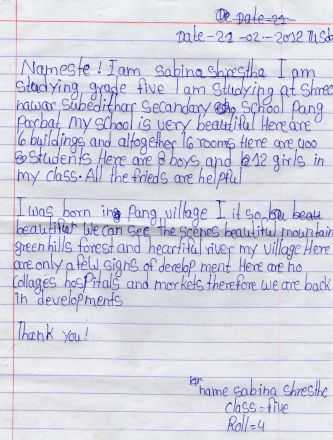 Date-21
Date-21-02-2012
Nameste! I am sabina shrestha I am
studying grade five I am studying at Shree
nawar Subedithar Secandary School Pang
Parbat My school is very beautiful Here are
6 buildings and altogether 16 rooms Here are 400
Students Here are 8 boys and 12 girls in
my class. All the frieds are helpful
I was born in Pang village I it so
beautiful We can see The scenes beautiful mountain
green hills forest and heartiful river my village Here
are only a few signs of derelop ment Here are no
collages hospitals and morkets therefore we are back
in developments
Thank you!
name sabina shrestha
class=five
Roll=4